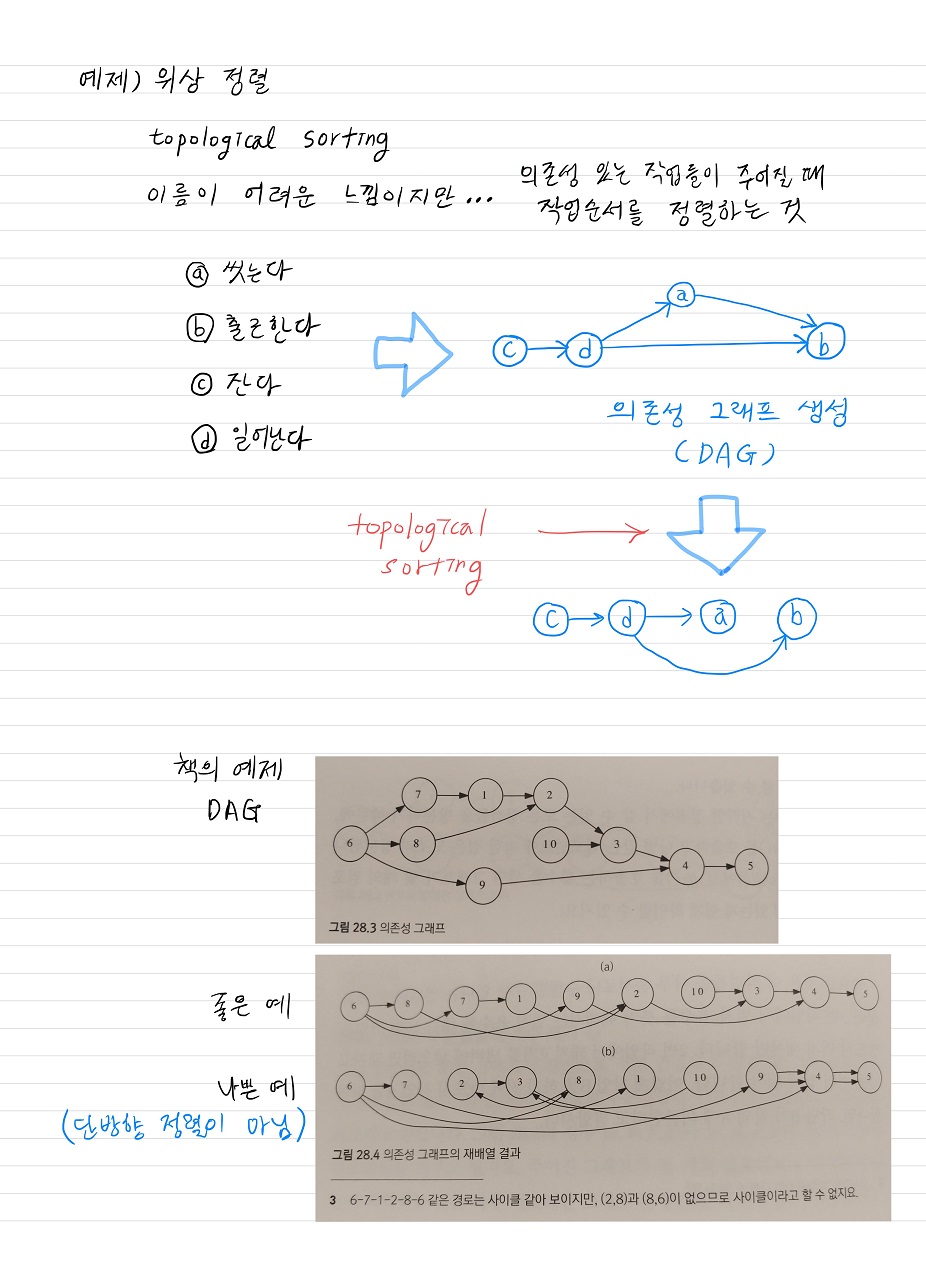 예제) 위상 정렬
topological sorting
이름이 어려운 느낌이지만...
의존성 있는 작업들이 주어질 때
작업순서를 정렬하는 것
ⓐ 씻는다
ⓑ 출근한다
ⓒ 잔다
ⓓ 일어난다
a
c d b
의존성 그래프 생성
(DAG)
topological
sorting
c d a b
책의 예제
DAG
7 1 2
6 8 10 3
9 4 5
그림 28.3 의존성 그래프
(a)
좋은 예
6 8 7 1 9 2 10 3 4 5
(b)
나쁜 예
(단방향 정렬이 아님)
6 7 2 3 8 1 10 9 4 5
그림 28.4 의존성 그래프의 재배열 결과
3 6-7-1-2-8-6 같은 경로는 사이클 같아 보이지만, (2,8)과 (8,6)이 없으므로 사이클이라고 할 수 없지요.